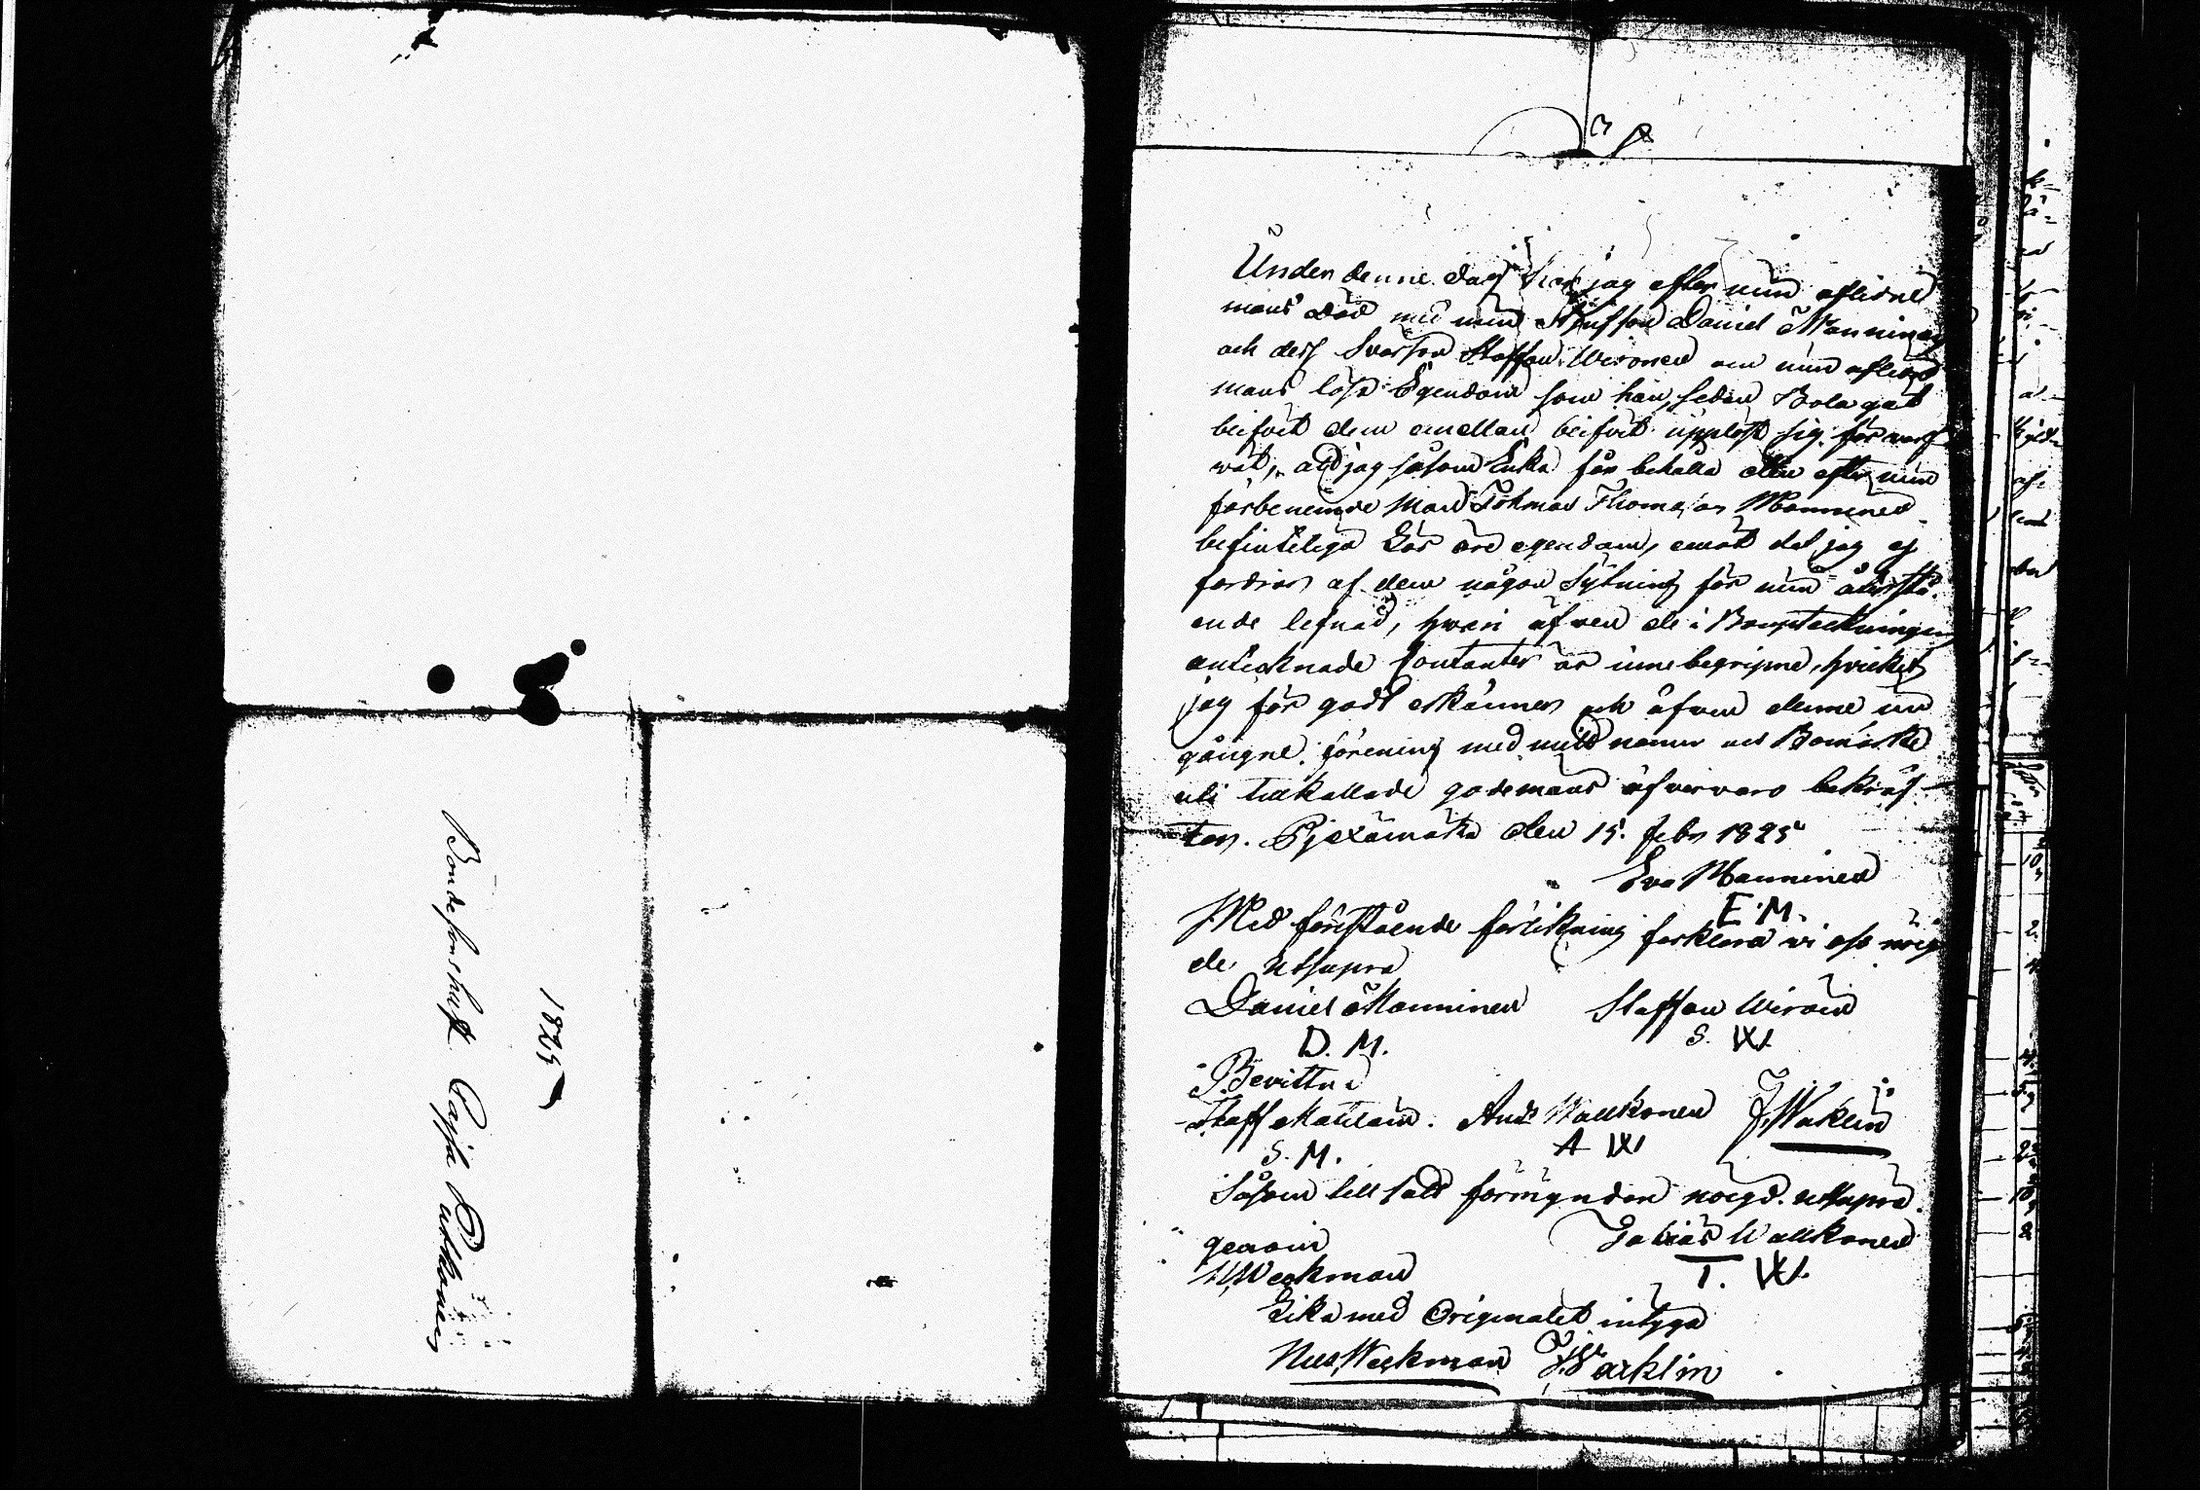 Bondesonshust. Cajsa Putkoinen
1825
Under denne dag har jag efter min aflidne
mans död med min Styfson Daniel Manninen
och dess Svarson Staffan Wironen om min aflidne
mans lösa Egendom som han, sedan Bolaget
beifvit dem emellan blifvit upplöst sig förverf
vat, att jag såsom Enka får behålla den efter min
förbenämde Man Tohmas Thomasson Manninen
befinteliga lösöre egendom, emot det jag ej
fordrar af dem någon Sytning för min återstå-
ende lefnad, hvari äfven de i Bouptekningen
antecknade Contanter är innebegripne, hvilket
jag för godt erkänner och äfven denne in
gångne förening med mitt namn och Bomärke
uti tilkallade godemäns öfvervaro bekräf-
tar. Pjexämäka den 15. febr 1825
Eva Manninen
E. M.
Med förestående förlikning förklara vi oss nöig
de Utsupra
Daniel Manninen Staffan Wiroin
D. M. S. W.
Bevittna
Staff Matilain. And. Walkonen J. Waklin
S. M. A W
Såsom tillsatt förmyndare nöigd. utsupra.
genom Tobias Walkonen
N Weckman T. W.
Lika med Originalet intyga
Nils Weckman J. Wacklin